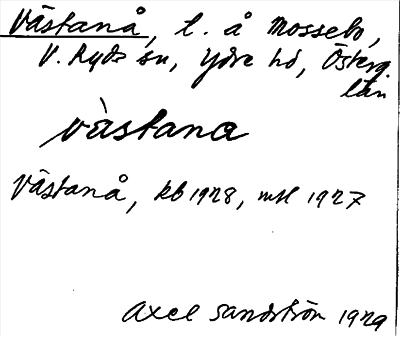 Västanå, l. å Mossebo,
V. Ryds sn, Ydre hd, Österg.
län
vàstana
Västanå, kb 1928, mtl 1927
Axel Sandström 1929